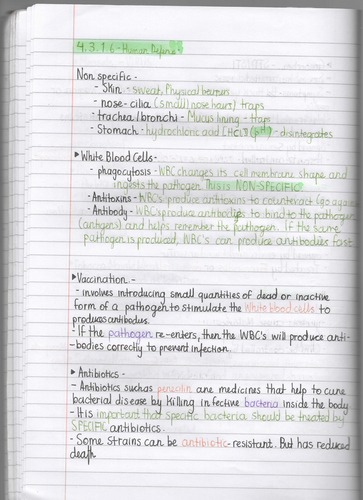 4.3.1.6 - Human Defen
Non specific -
- Skin - sweat, Physical barriers
- nose - cilia (small) nose hairs) traps
- trachea/bronchi - Mucus lining - traps
- Stomach - hydrochloric acid [HCl] (pH) - disintegrates
▸ White Blood Cells -
- phagocytosis - WBC changes its cell membrane shape and
ingests the pathogen. This is NON-SPECIFIC
- Antitoxins - WBC's produce antitoxins to counteract (go against
- Antibody - WBC's produce antibodies to bind to the pathogen
(antigens) and helps remember the pathogen. If the same
pathogen is produced, WBC's can produce antibodies fast
▸ Vaccination -
- involves introducing small quantities of dead or inactive
form of a pathogen to stimulate the white blood cells to
produce antibodies.
- If the pathogen re-enters, then the WBC's will produce anti-
-bodies correctly to prevent infection.
▸ Antibiotics -
- Antibiotics such as penicilin are medicines that help to cure
bacterial disease by killing infective bacteria inside the body
- It is important that specific bacteria should be treated by
SPECIFIC antibiotics.
- Some strains can be antibiotic-resistant. But has reduced
death